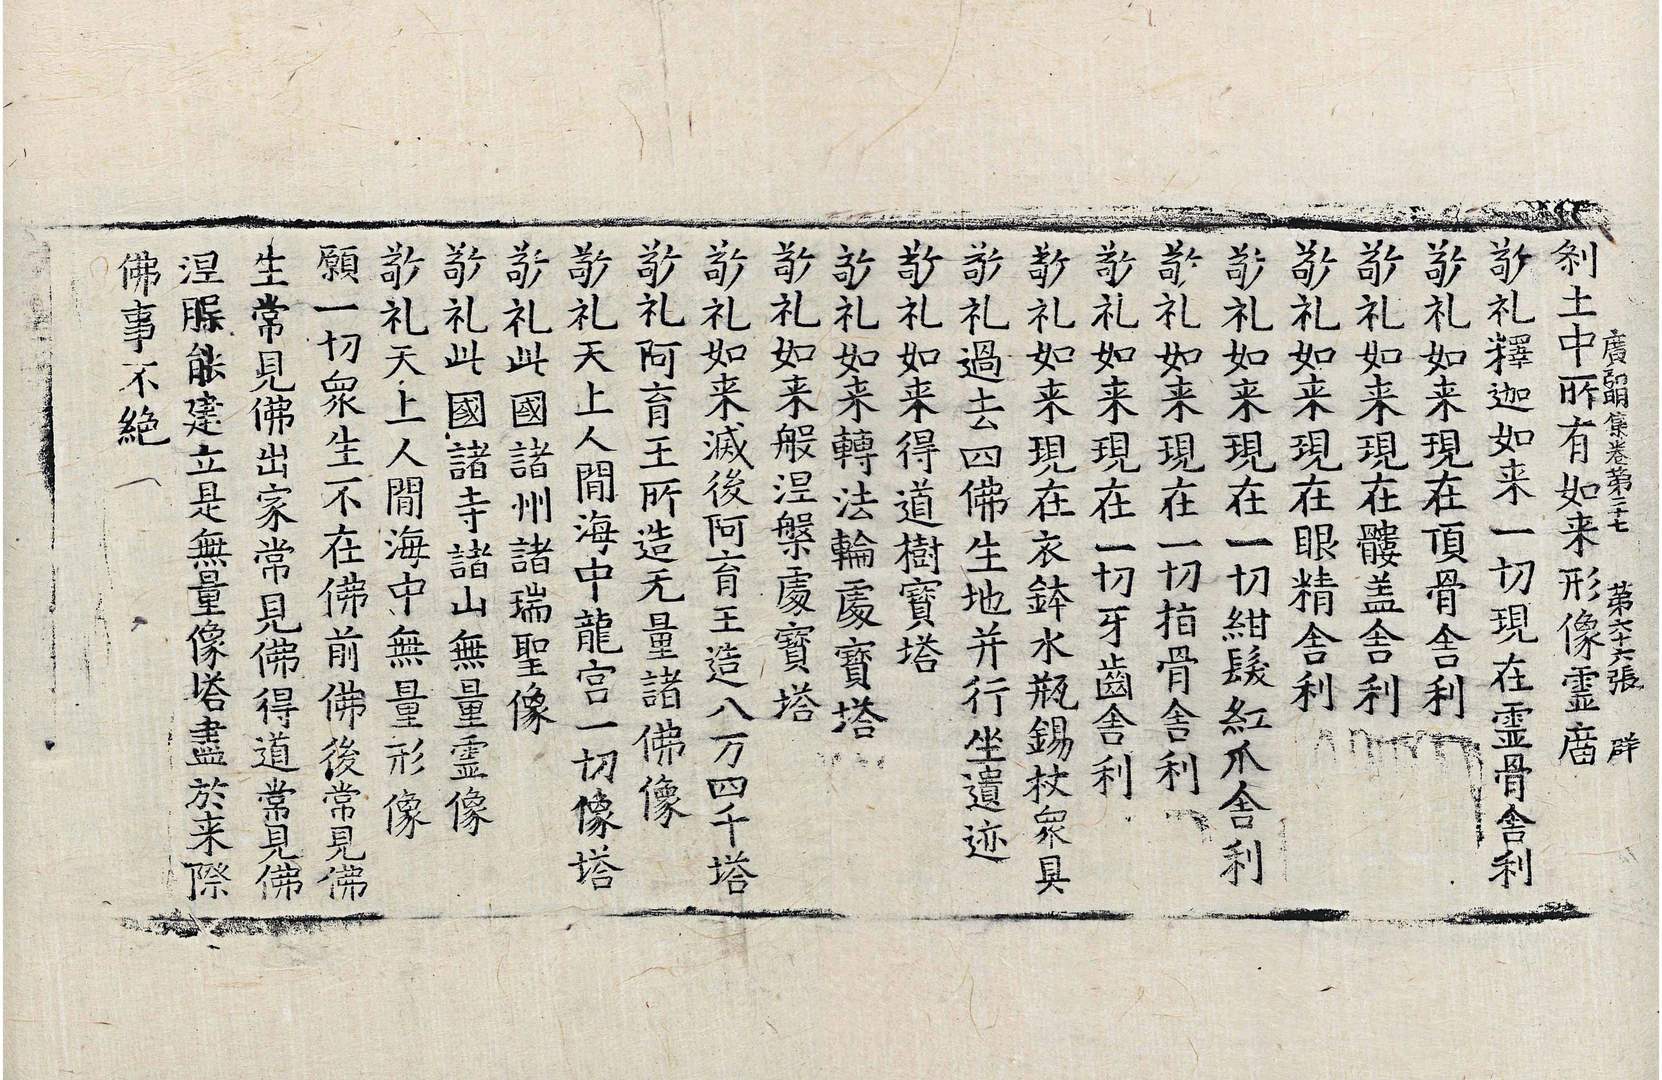 廣弘明集卷第二十七 第六十六張 群
剎土中所有如来形像霊廟
敬礼釋迦如来一切現在霊骨舎利
敬礼如来現在頂骨舎利
敬礼如来現在髏盖舎利
敬礼如来現在眼精舎利
敬礼如来現在一切紺髮紅爪舎利
敬礼如来現在一切指骨舎利
敬礼如来現在一切牙齒舎利
敬礼如来現在衣鉢水瓶錫杖衆具
敬礼過去四佛生地并行坐遺迹
敬礼如来得道樹寶塔
敬礼如来轉法輪處寶塔
敬礼如来般涅槃處寶塔
敬礼如来滅後阿育王造八万四千塔
敬礼阿育王所造无量諸佛像
敬礼天上人間海中龍宫一切像塔
敬礼此國諸州諸瑞聖像
敬礼此國諸寺諸山無量霊像
敬礼天上人間海中無量形像
願一切衆生不在佛前佛後常見佛
生常見佛出家常見佛得道常見佛
涅能建立是無量像塔盡於来際
佛事不絶